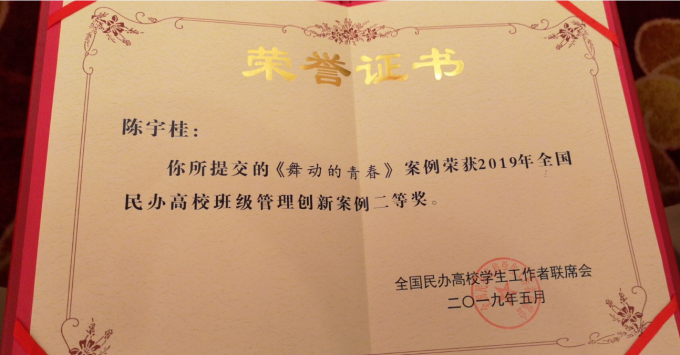 荣誉证书
陈宇桂：
你所提交的《舞动的青春》案例荣获2019年全国
民办高校班级管理创新案例二等奖。
全国民办高校学生工作者联席会
二〇一九年五月